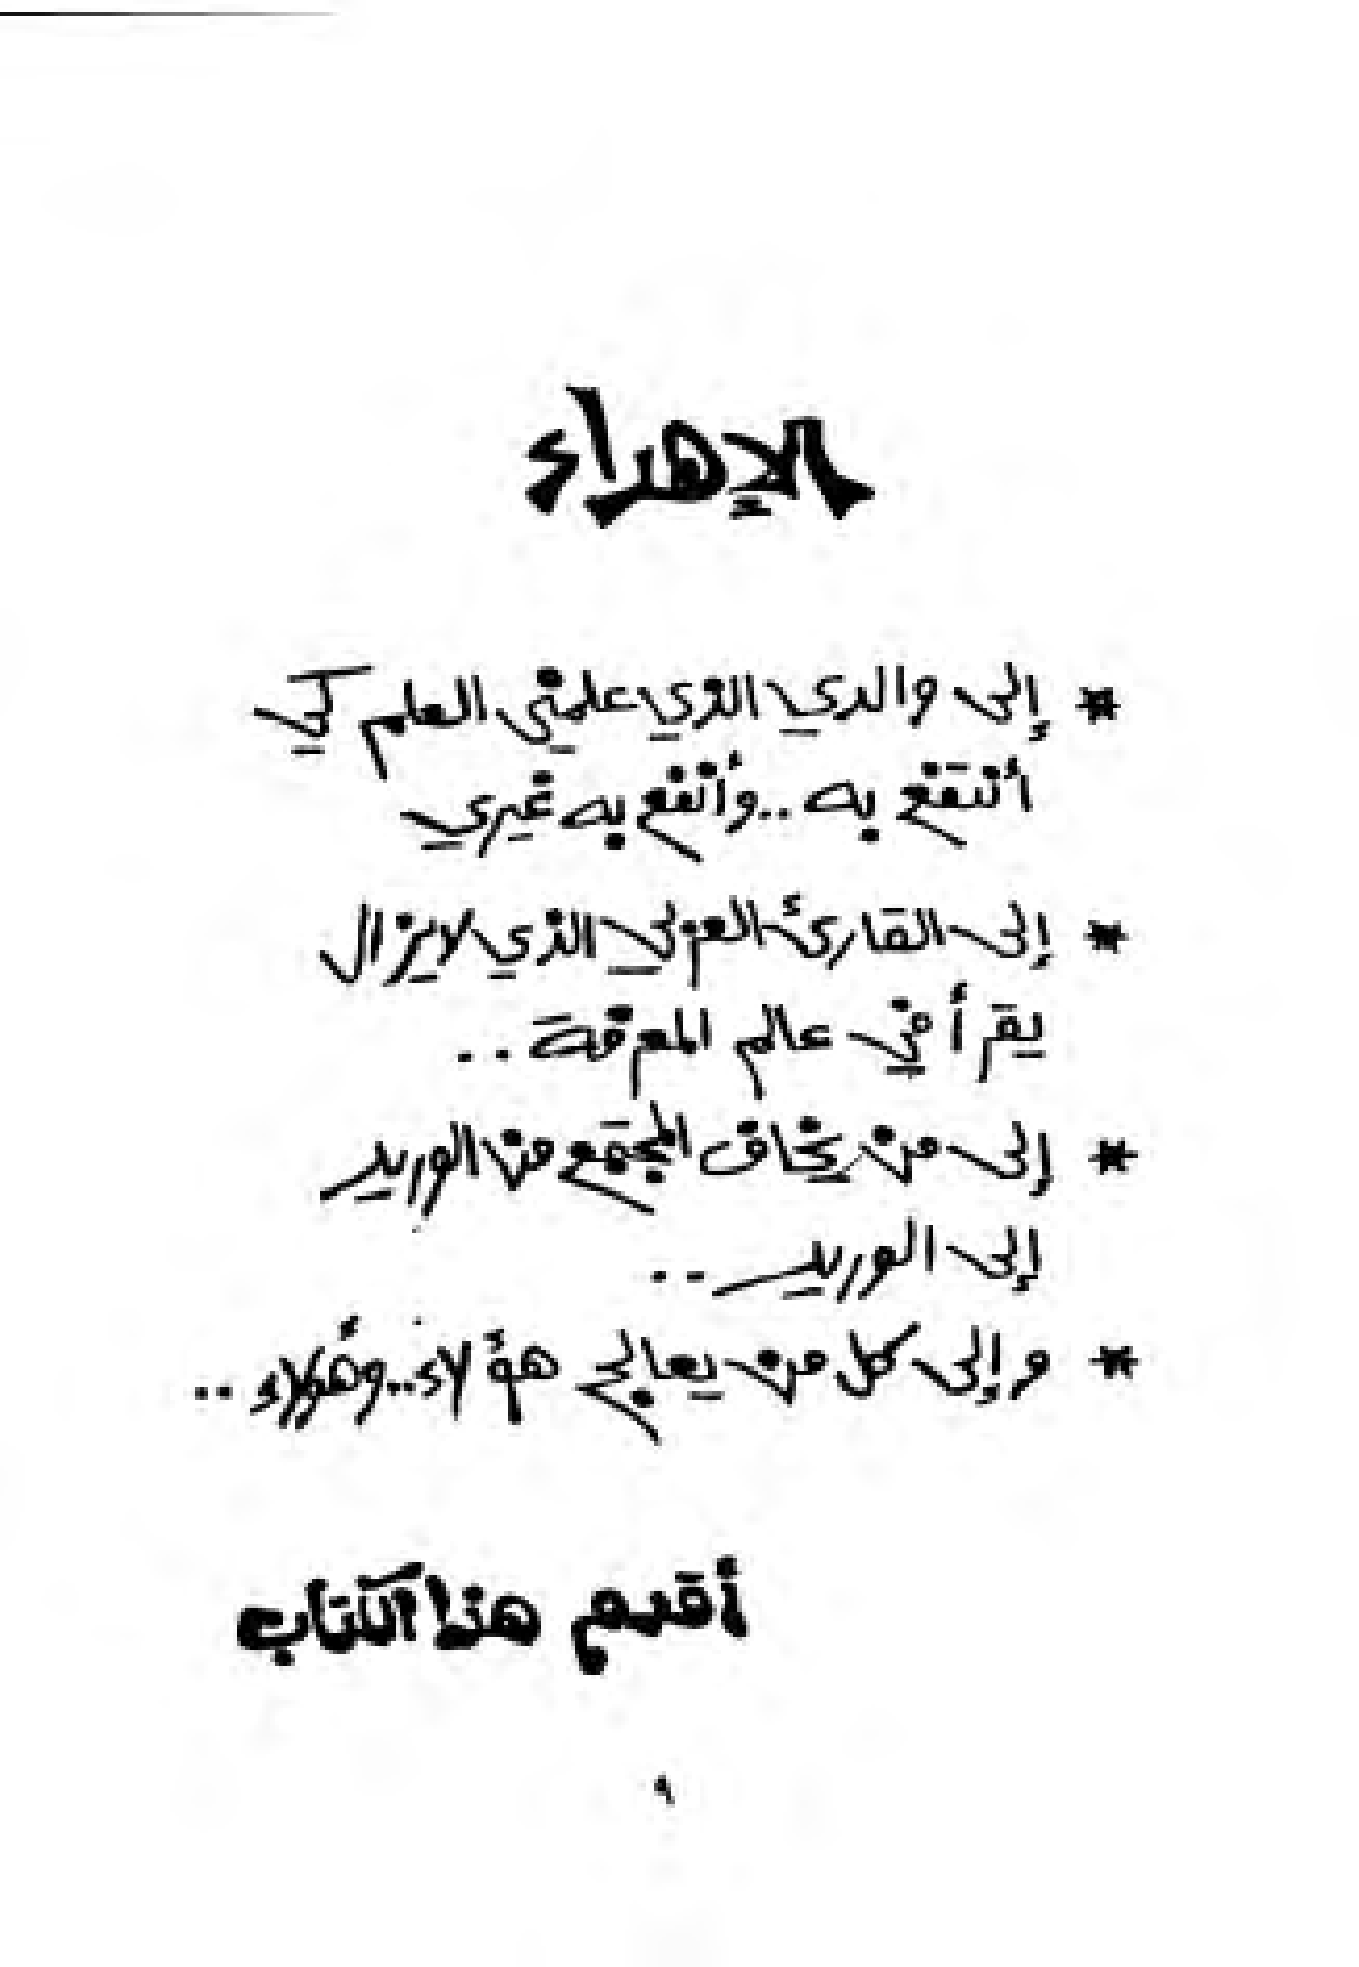 الإهداء
* إلى والدي الذي علمني العلم كي
أنتفع به .. وأنفع به غيري
* إلى القارئ العربي الذي لا يزال
يقرأ في عالم المعرفة ..
* إلى من يخاف المجتمع من الوريد
إلى الوريد ..
* وإلى كل من يعالج هؤلاء .. وهؤلاء ..
أقدم هذا الكتاب
٩